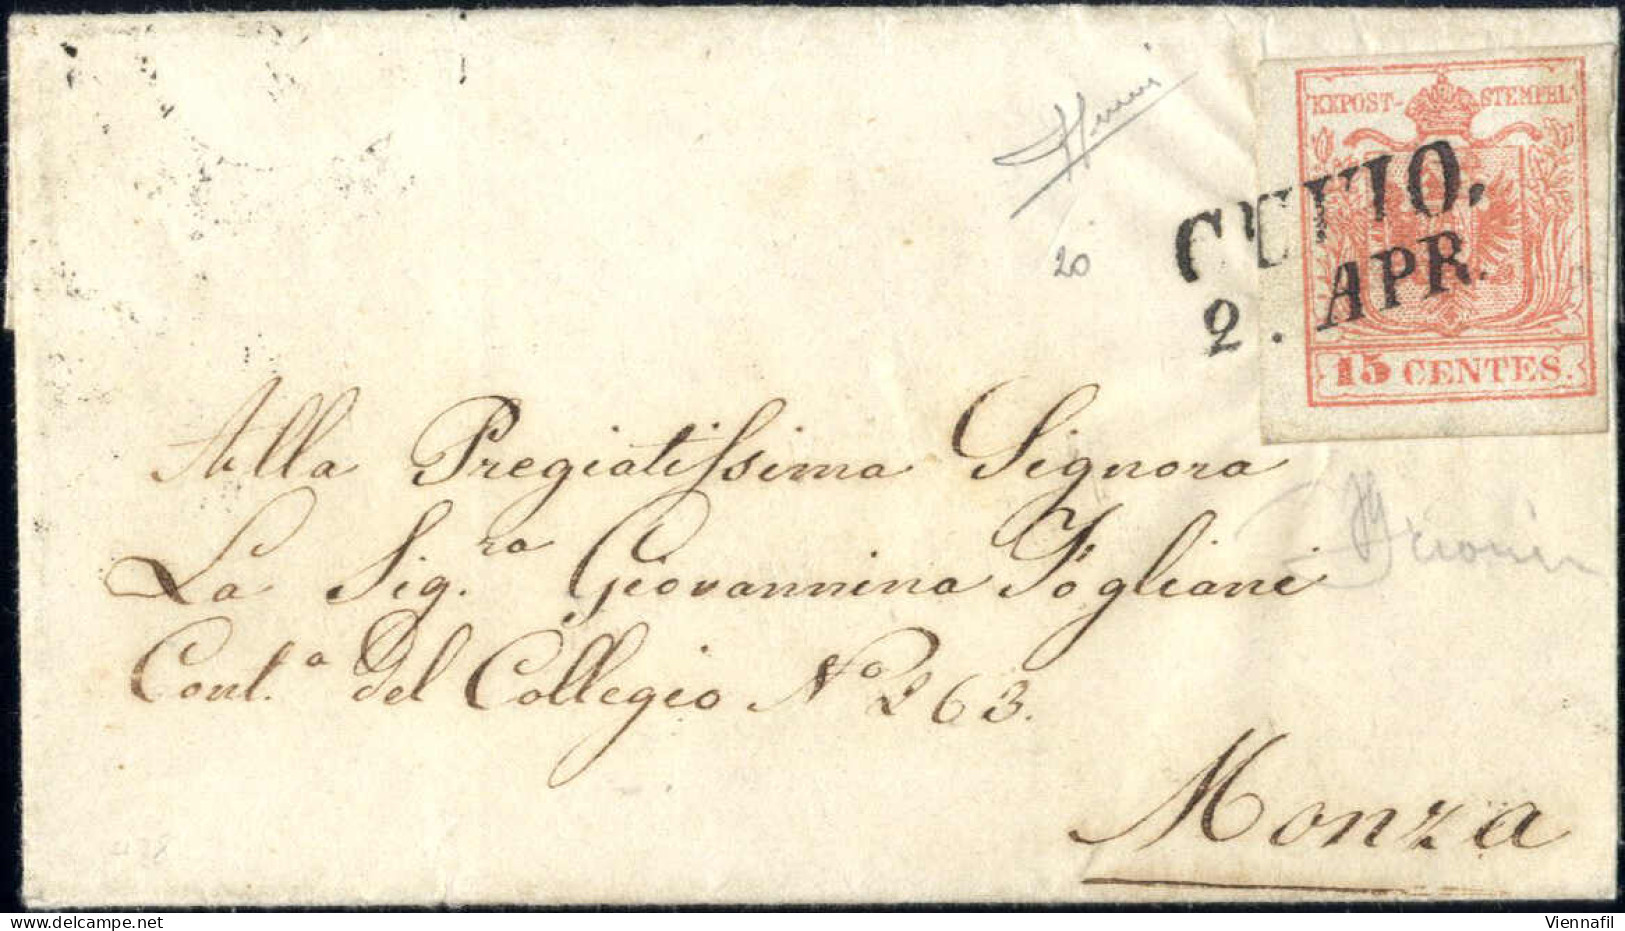 KKPOST-STEMPEL
CUVIO.
2. APR.
15 CENTES.
20
Alla Pregiatissima Signora
La Sig.ra Giovannina Fogliani
Cont.a del Collegio No 263.
Monza
Viennafil